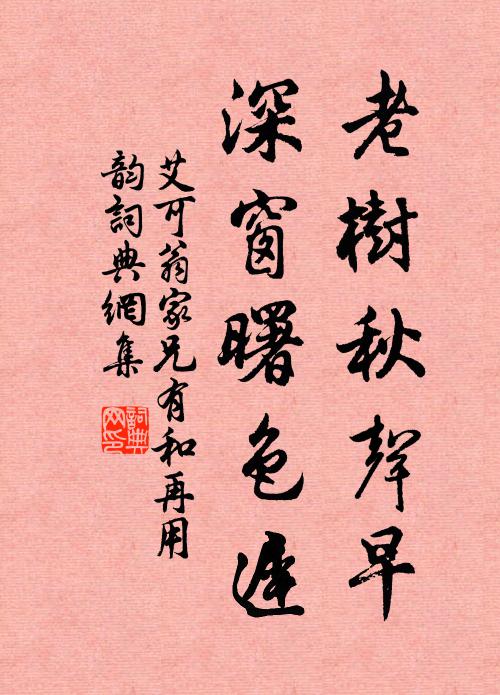 老樹秋聲早
深窗曙色遲
艾可翁家兄有和再用
韵詞典網集
詞典网印